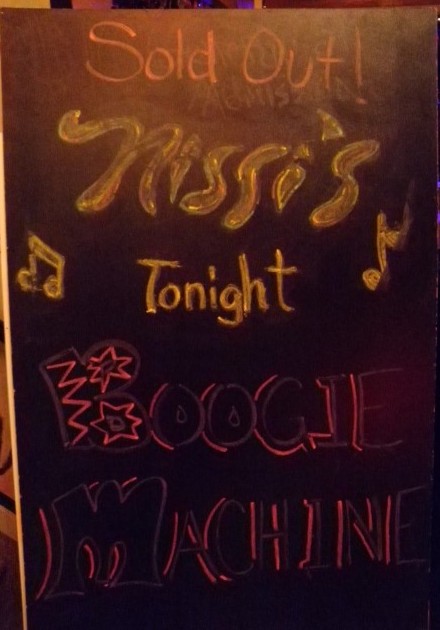 Sold Out!
Nissi's
Tonight
BOOGIE
MACHINE